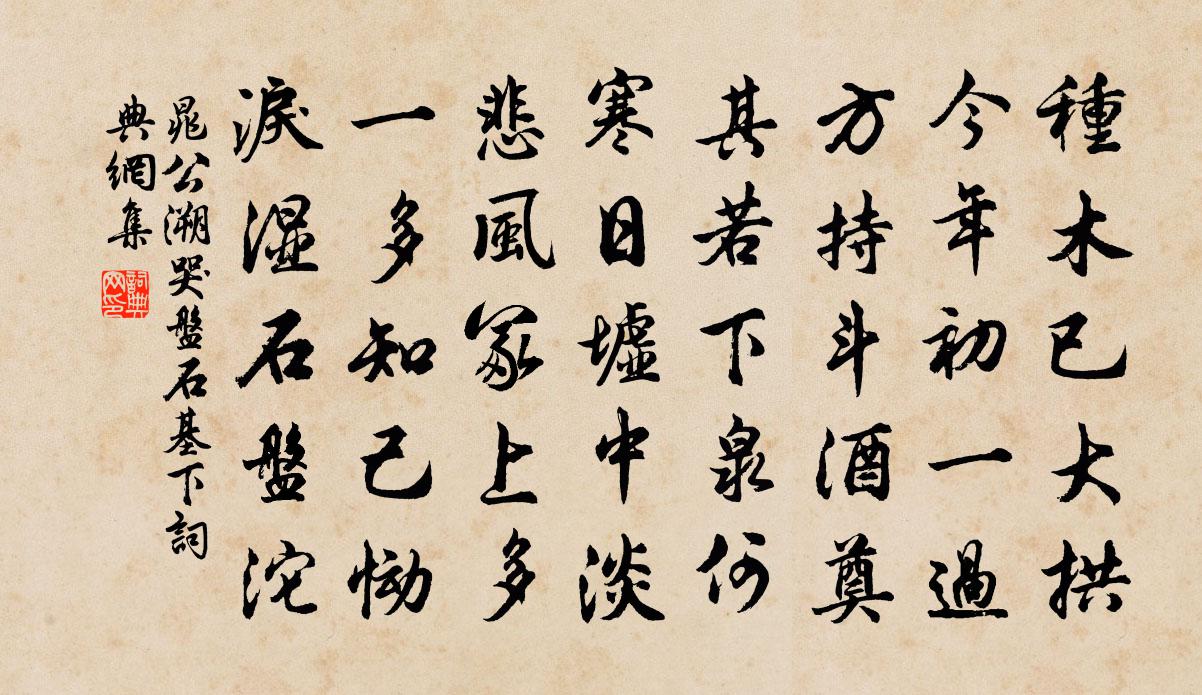 種木已大拱
今年初一過
方持斗酒奠
其若下泉何
寒日墟中淡
悲風冢上多
一多知己慟
淚濕石盤沱
晁公溯哭盤石基下詞
典網集
詞典
网印